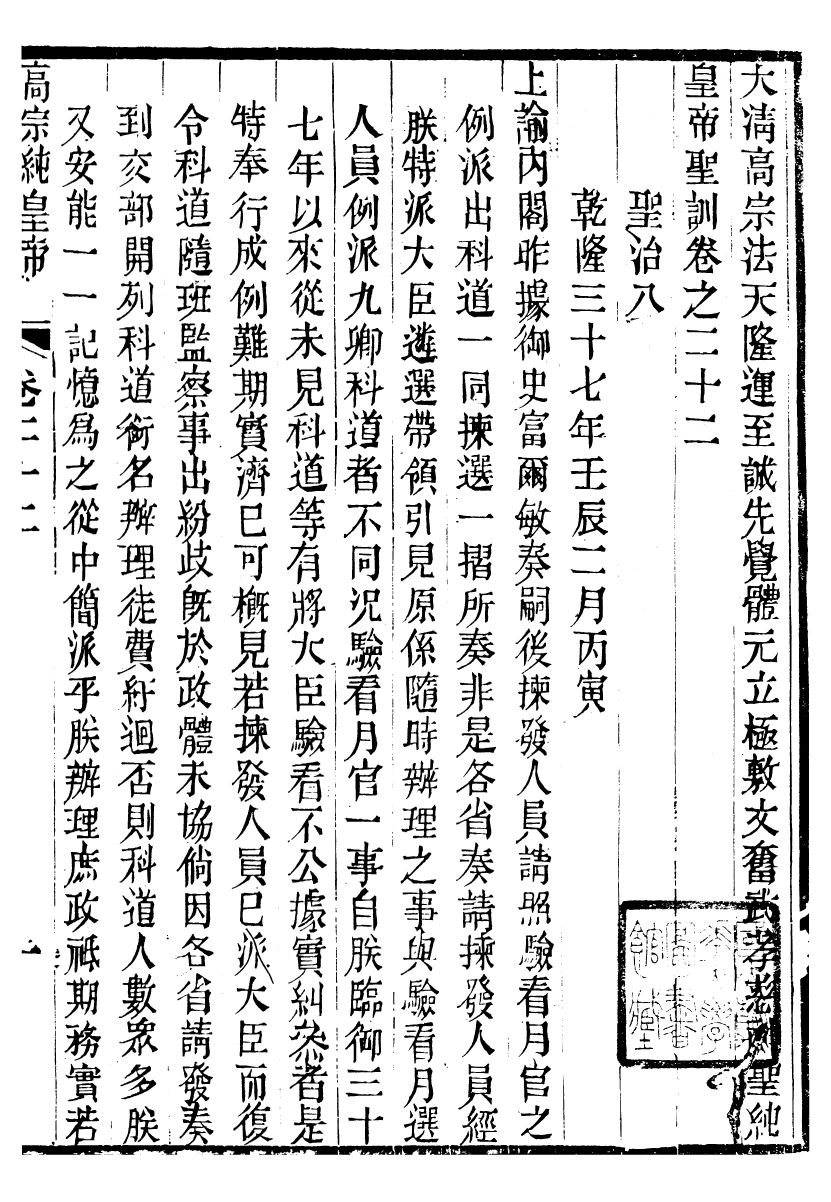 大清高宗法天隆運至誠先覺體元立極敷文奮武孝慈神聖純
皇帝聖訓卷之二十二
聖治八
乾隆三十七年壬辰二月丙寅
上諭內閣昨據御史富爾敏奏嗣後揀發人員請照驗看月官之
例派出科道一同揀選一摺所奏非是各省奏請揀發人員經
朕特派大臣遴選帶領引見原係隨時辦理之事與驗看月選
人員例派九卿科道者不同況驗看月官一事自朕臨御三十
七年以來從未見科道等有將大臣驗看不公據實糾叅者是
特奉行成例難期實濟已可概見若揀發人員已派大臣而復
令科道隨班監察事出紛歧旣於政體未協倘因各省請發奏
到交部開列科道銜名辦理徒費紆迴否則科道人數眾多朕
又安能一一記憶爲之從中簡派乎朕辦理庶政祗期務實若
高宗純皇帝 卷二十二 一